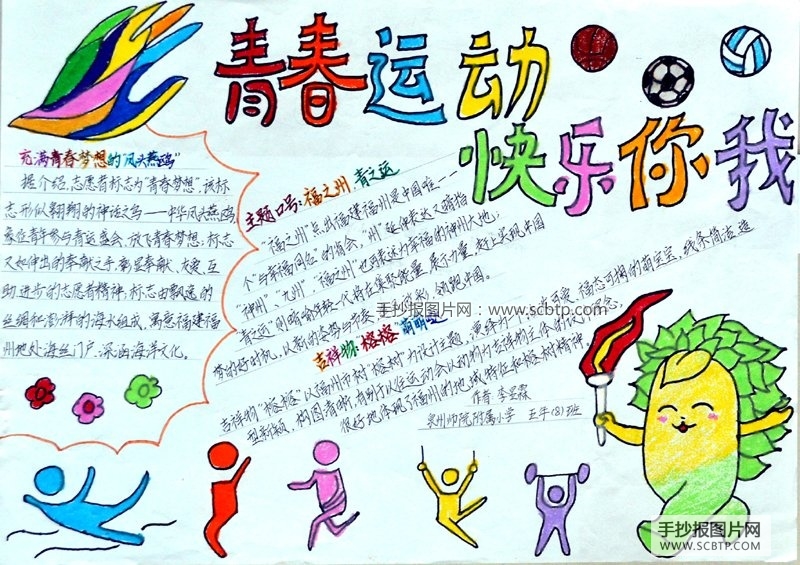 青春运动
快乐你我
充满青春梦想的“凤头燕鸥”
据介绍,志愿者标志为“青春梦想”,该标
志形似翱翔的神话之鸟——中华凤头燕鸥,
象征青年参与青运盛会,放飞青春梦想;标志
又如伸出的奉献之手,彰显奉献、友爱、互
助、进步的志愿者精神,标志由飘逸的
丝绸和澎湃的海水组成,寓意福建福
州地处海丝门户,深涵海洋文化。
主题口号:福之州 青之运
“福之州”点出福建福州是中国唯一一
个“与幸福同名”的省会,“州”延伸表达又暗指
“神州”、“九州”,“福之州”也可表达为幸福的神州大地;
“青之运”则暗喻年轻一代将在聚能量 展示力量,赶上实现中国
梦的好时机,以新的姿势与节奏 领跑中国。
手抄报图片网:www.scbtp.com
吉祥物:榕榕 萌萌
吉祥物“榕榕”以福州市树“榕树”为设计主题,
可爱、福态可掬的萌宝宝,线条简洁,造
型新颖,构图清晰,有别于以往运动会以动物为吉祥物主体的设计理念,
很好地体现了福州的地域特征和榕树精神。
作者 李昱霖
泉州师院附属小学 五年(8)班
手抄报图片网
www.SCBTP.com